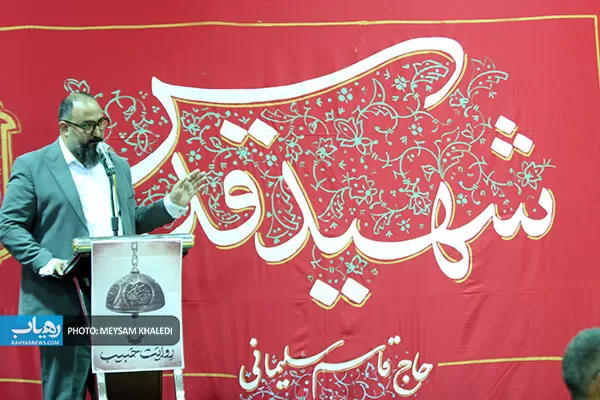 شهید قدس
حاج قاسم سلیمانی
روایت حبیب
رهیاب
RAHYABNEWS.COM
PHOTO: MEYSAM KHALEDI